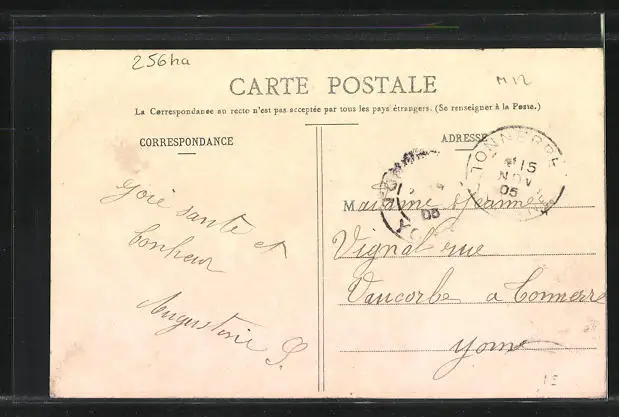 256ha
M12
CARTE POSTALE
La Correspondance au recto n'est pas acceptée par tous les pays étrangers. (Se renseigner à la Poste.)
CORRESPONDANCE
ADRESSE
TONNERRE
15
NOV
05
05
YO
Joie santé et
bonheur
Augustine S.
Madame Jeanne
Vignal rue
Vaucorbe a Tonnerre
Yonne